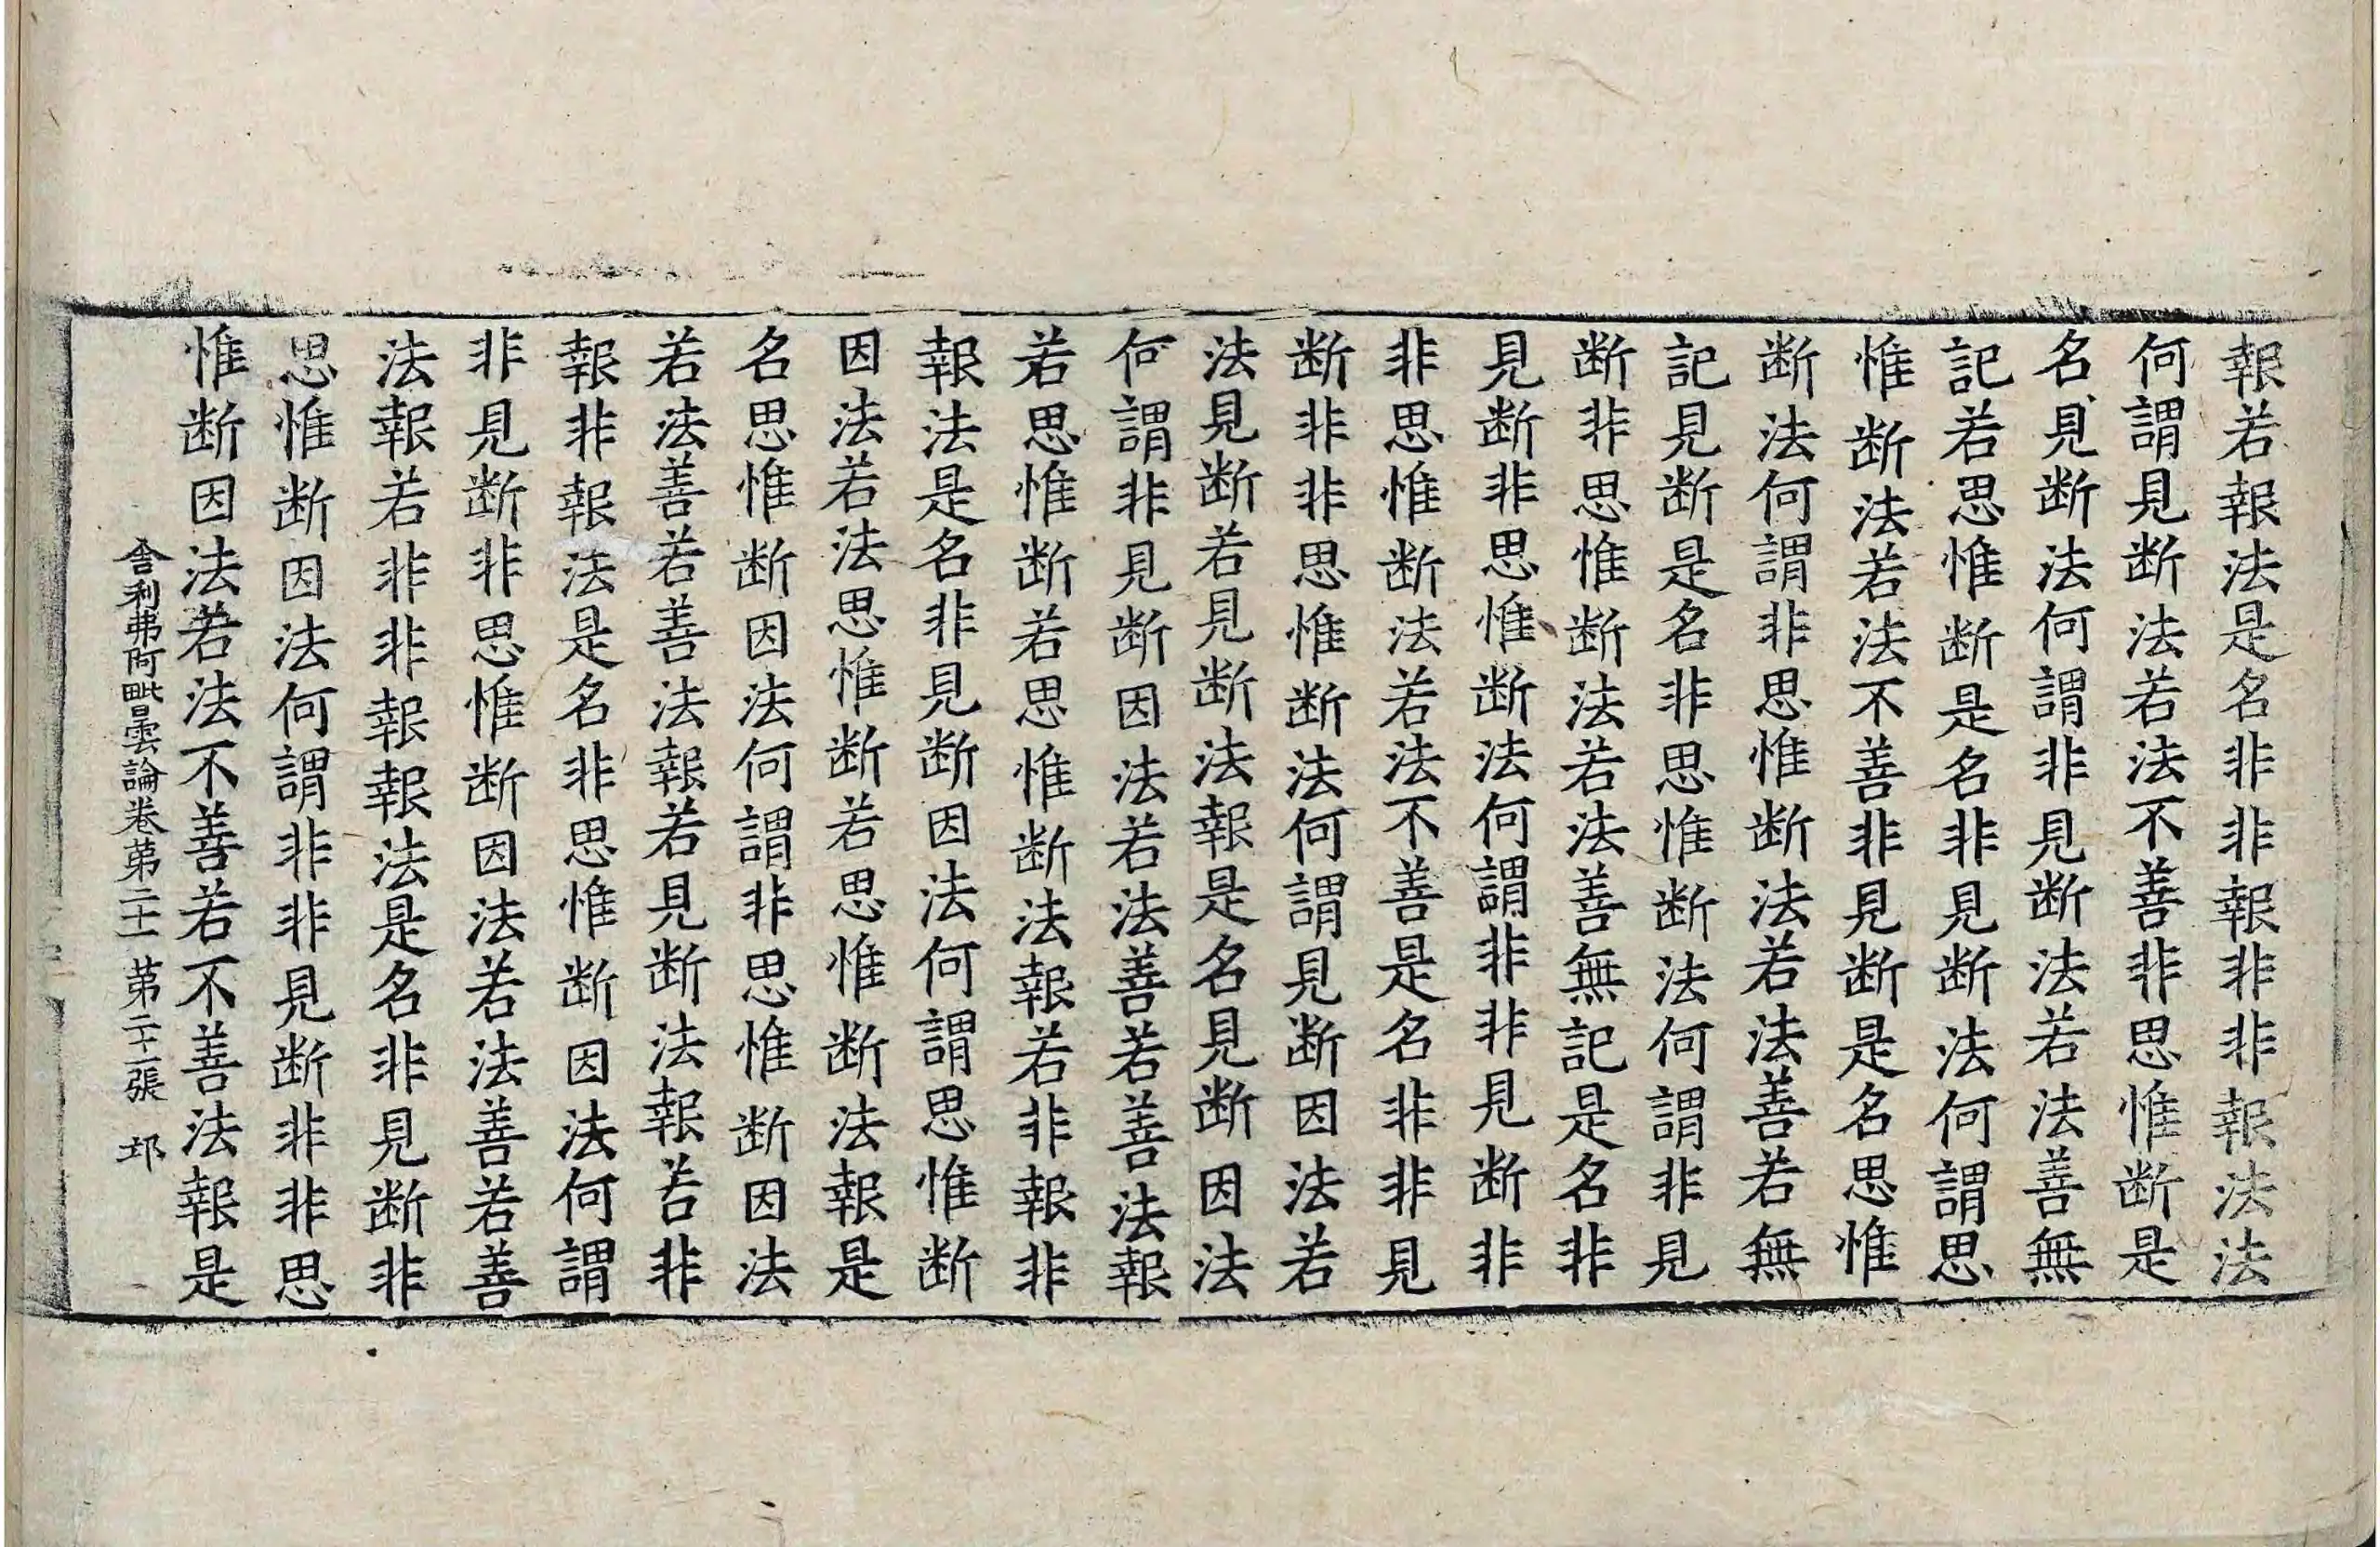 報若報法是名非非報非非報法法
何謂見断法若法不善非思惟断是
名見断法何謂非見断法若法善無
記若思惟断是名非見断法何謂思
惟断法若法不善非見断是名思惟
断法何謂非思惟断法若法善若無
記見断是名非思惟断法何謂非見
断非思惟断法若法善無記是名非
見断非思惟断法何謂非非見断非
非思惟断法若法不善是名非非見
断非非思惟断法何謂見断因法若
法見断若見断法報是名見断因法
何謂非見断因法若法善若善法報
若思惟断若思惟断法報若非報非
報法是名非見断因法何謂思惟断
因法若法思惟断若思惟断法報是
名思惟断因法何謂非思惟断因法
若法善若善法報若見断法報若非
報非報法是名非思惟断因法何謂
非見断非思惟断因法若法善若善
法報若非非報報法是名非見断非
思惟断因法何謂非非見断非非思
惟断因法若法不善若不善法報是
舎利弗阿毗曇論卷苐二十一 苐二十二張 邛